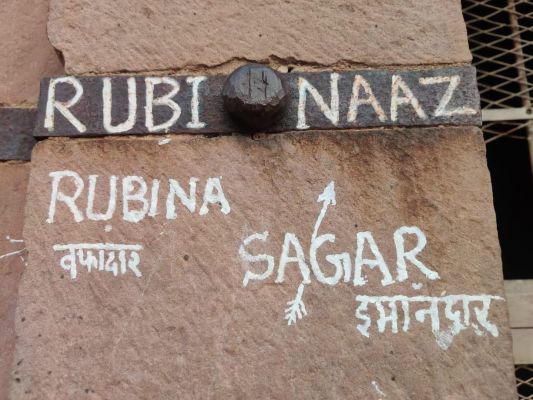 RUBI NAAZ
RUBINA
वफादार
SAGAR
इमानंदार